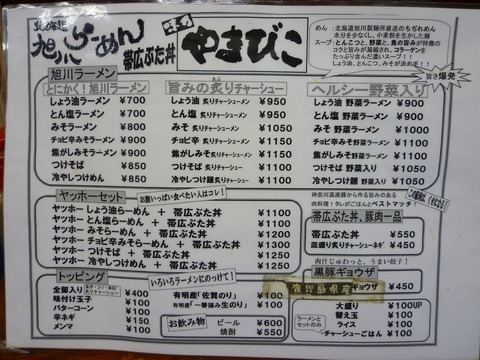 北海道
旭川らーめん
帯広ぶた丼
やまびこ
めん :北海道旭川製麺所直送のちぢれめん
水分を少なくし、小麦粉を生かした麺
スープ:とんこつと、野菜と、魚の旨みが特徴の
コクと旨みが凝縮され、コラーゲンを
たっぷり含んだ濃いスープ!!
しょう油、とんこつ、みそが決め手!!
旨さ爆発
旭川ラーメン
とにかく!旭川ラーメン
しょう油ラーメン ¥700
とん塩ラーメン ¥700
みそラーメン ¥800
チョビ辛みそラーメン ¥900
焦がしみそラーメン ¥900
つけそば ¥850
冷やしつけめん ¥850
旨みの炙りチャーシュー
しょう油 炙りチャーシューメン ¥950
とん塩 炙りチャーシューメン ¥950
みそ 炙りチャーシューメン ¥1050
チョビ辛 炙りチャーシューメン ¥1150
焦がしみそ炙りチャーシューメン ¥1150
つけそば 炙りチャーシュー ¥1100
冷やしつけ麺炙りチャーシュー ¥1100
ヘルシー野菜入り
しょう油 野菜ラーメン ¥900
とん塩 野菜ラーメン ¥900
みそ 野菜ラーメン ¥1000
チョビ辛みそ野菜ラーメン ¥1100
焦がしみそ野菜ラーメン ¥1100
つけそば 野菜入り ¥1050
冷やしつけ麺 野菜入り ¥1050
ヤッホーセット
お腹いっぱい食べたい人はコレ!
ヤッホーしょう油らーめん + 帯広ぶた丼 ¥1100
ヤッホーとん塩らーめん + 帯広ぶた丼 ¥1100
ヤッホーみそらーめん + 帯広ぶた丼 ¥1200
ヤッホーチョビ辛みそらーめん + 帯広ぶた丼 ¥1300
ヤッホーつけそば + 帯広ぶた丼 ¥1250
ヤッホー冷やしつけめん + 帯広ぶた丼 ¥1250
神奈川高座豚から作る旨みのある
肉料理!タレがごはんとベストマッチ!
帯広ぶた丼、豚肉一品
帯広ぶた丼 ¥550
皿盛り炙りチャーシューネギ ¥450
肉汁じゅわっと、うまい餃子!
黒豚ギョウザ
鹿児島県産
ギョウザ ¥450
トッピング
いろいろラーメンにのっけて!
全部入り ¥400
味付け玉子 ¥100
バターコーン ¥100
辛ネギ ¥150
メンマ ¥100
有明産「佐賀のり」 ¥100
有明産「一番摘み生のり」 ¥200
お飲み物
ビール ¥600
焼酎 ¥550
ラーメンとセットのみ
大盛り ¥100UP
替え玉 ¥100
ライス ¥100
チャーシューごはん ¥300